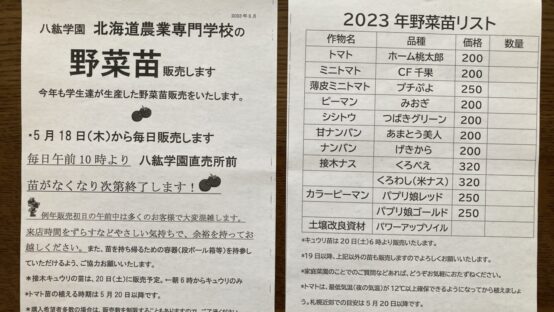 2023年5月
八紘学園 北海道農業専門学校の
野菜苗販売します
今年も学生達が生産した野菜苗販売をいたします。
・5月18日(木)から毎日販売します
毎日午前10時より 八紘学園直売所前
苗がなくなり次第終了します！
例年販売初日の午前中は多くのお客様で大変混雑します。
来店時間をずらすなどやさしい気持ちで、余裕を持ってお
越しください。また、苗を持ち帰るための容器(段ボール箱等)を持参し
ていただけるよう、ご協力お願いします。
*接木キュウリの苗は、20日(土)に販売予定。←朝6時からキュウリのみ
*トマト苗の植える時期は5月20日以降です。
*購入希望者多数の場合は、販売数を制限することもありますので、ご了承ください。
2023年野菜苗リスト
作物名 品種 価格 数量
トマト ホーム桃太郎 200
ミニトマト CF千果 200
薄皮ミニトマト プチぷよ 250
ピーマン みおぎ 200
シシトウ つばきグリーン 200
甘ナンバン あまとう美人 200
ナンバン げきから 200
接木ナス くろべえ 320
くろわし(米ナス) 320
カラーピーマン パプリ娘レッド 250
パプリ娘ゴールド 250
土壌改良資材 パワーアップソイル
*キュウリ苗は20日(土)6時より販売いたします。
*19日以降、上記以外の苗も販売しますのでよろしくお願いいたします。
*家庭菜園のことでのご質問などあれば、どうぞお気軽におたずねください。
*トマトは、最低気温(夜の気温)が12℃以上確保できるようになってから植えましょ
う。札幌近郊での目安は5月20日以降です。